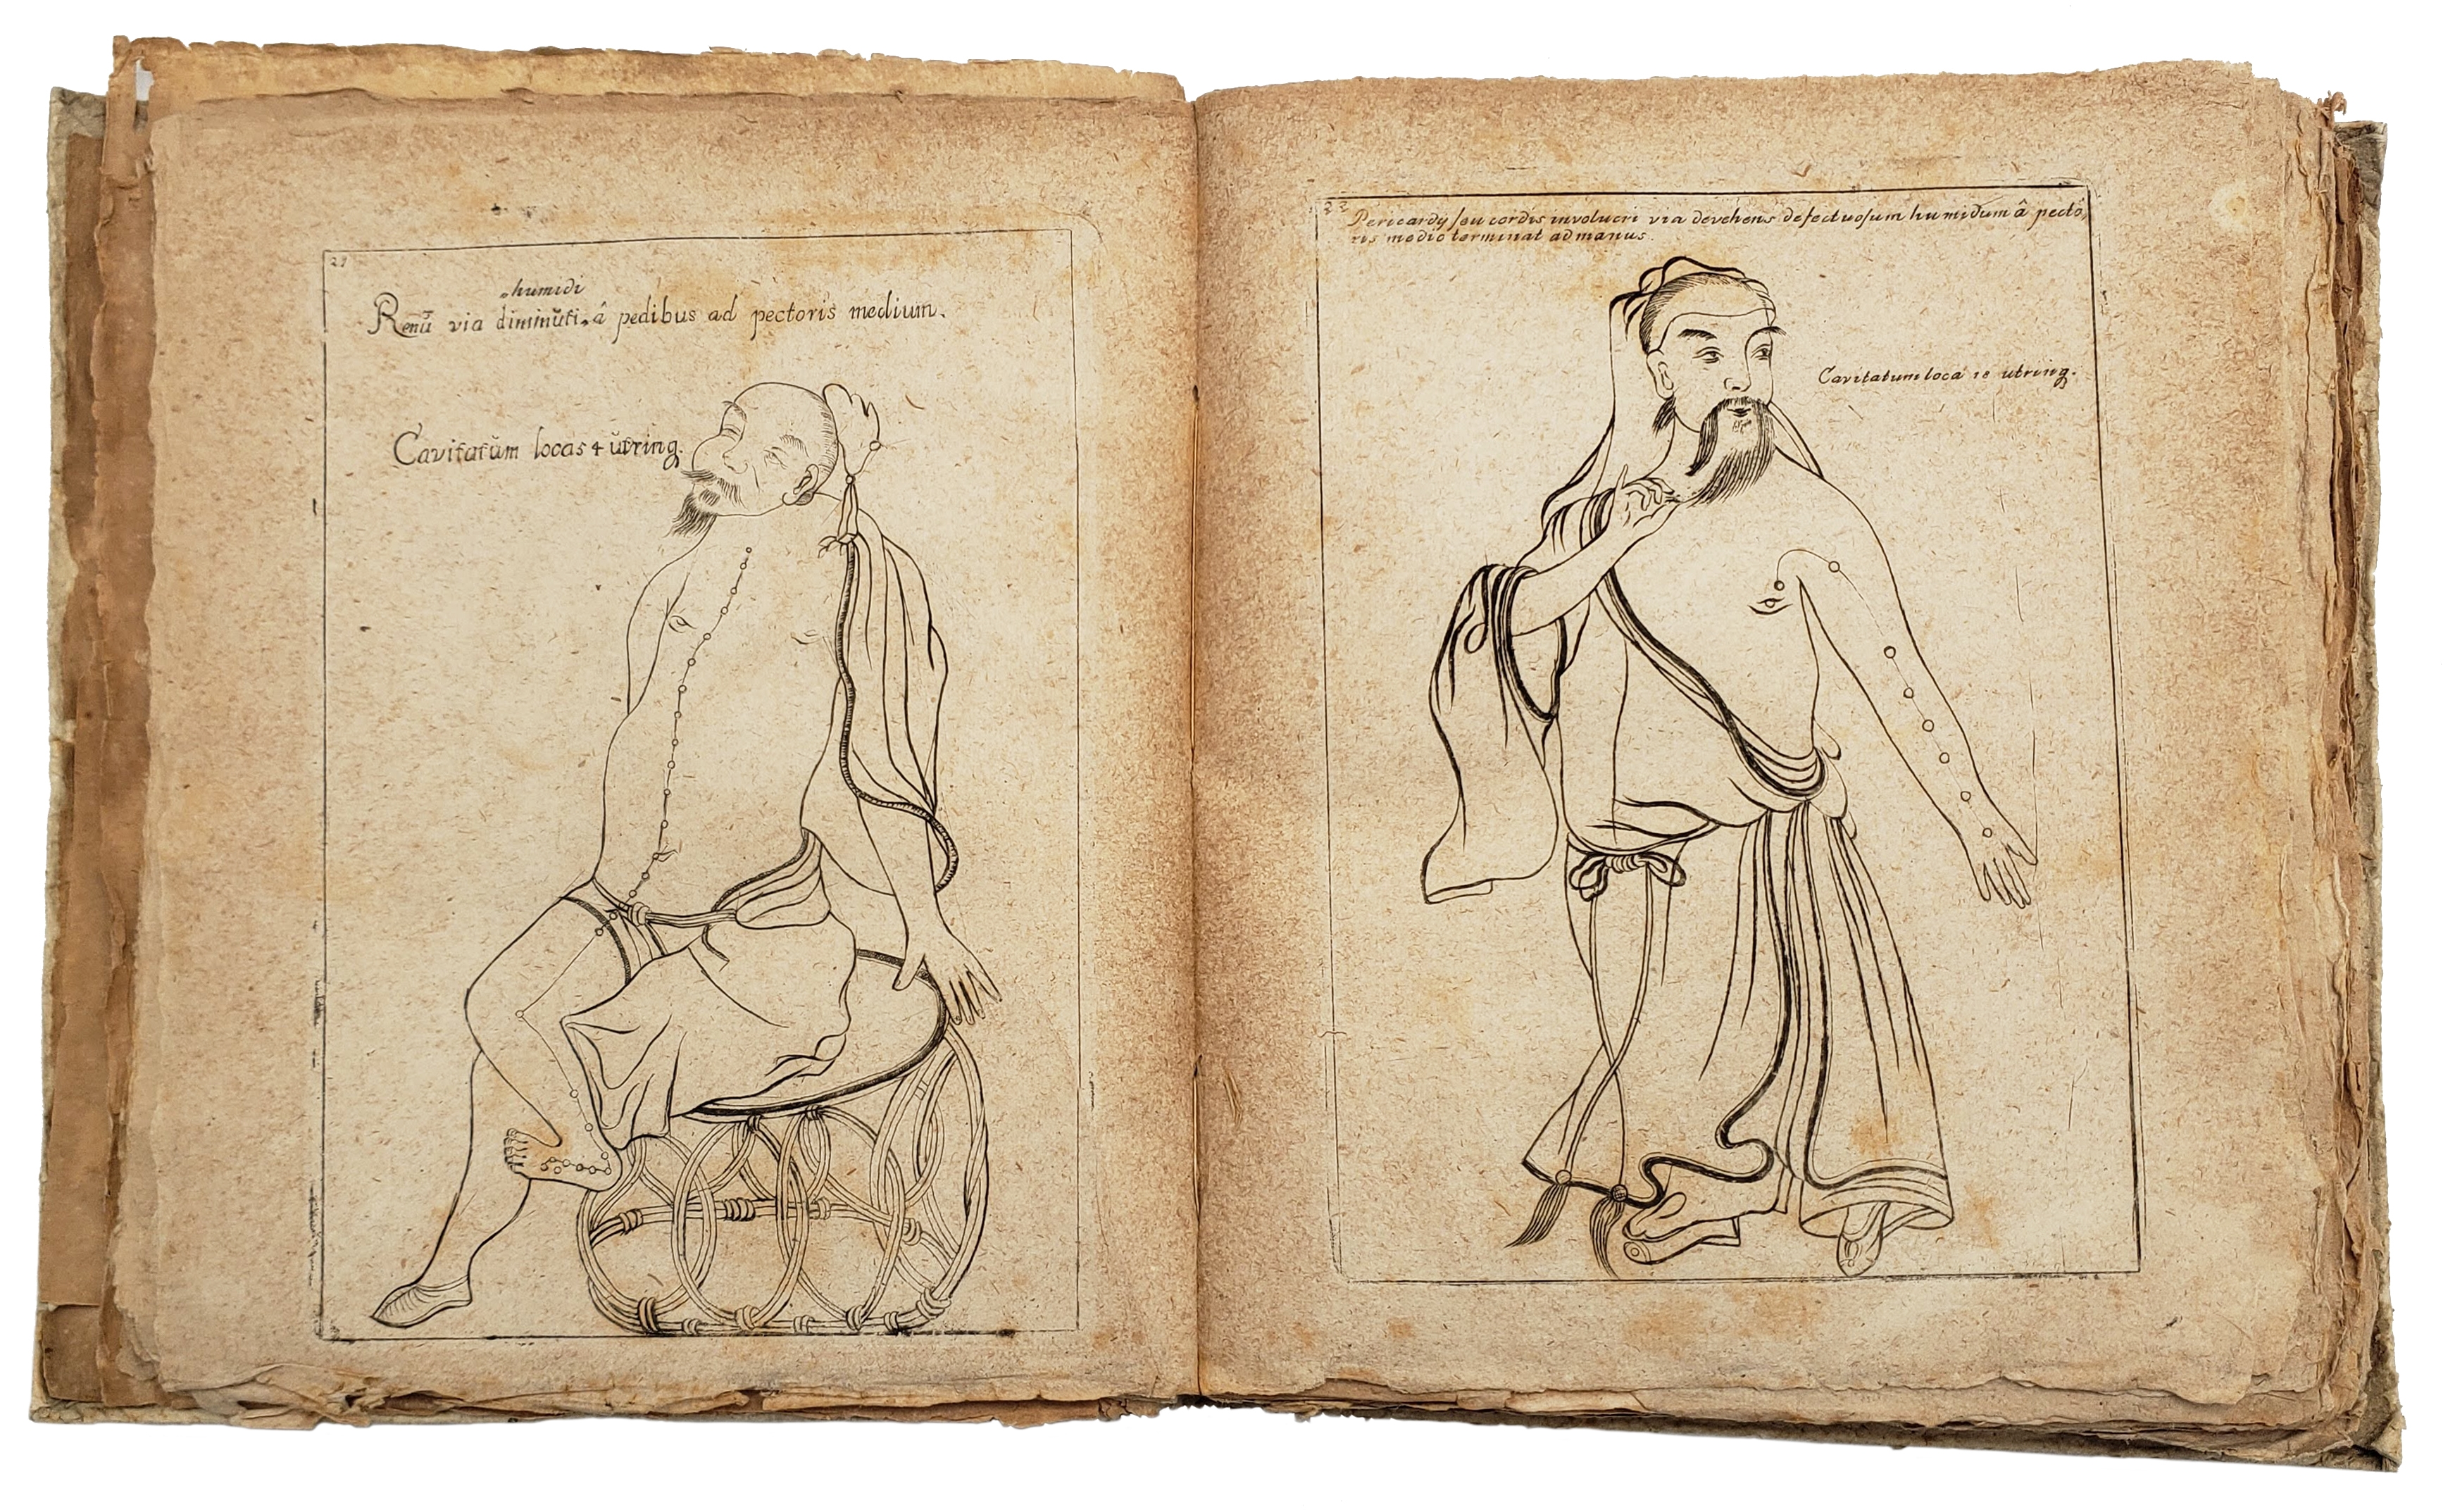 21
humidi
Renũ via diminũti â pedibus ad pectoris medium.
Cavitatũm locas 4 ũtrinq.
22
Pericardy seu cordis involucri via devehens defectuosum humidum â pecto,
ris medio terminat ad manus.
Cavitatum loca 18 utrinq.